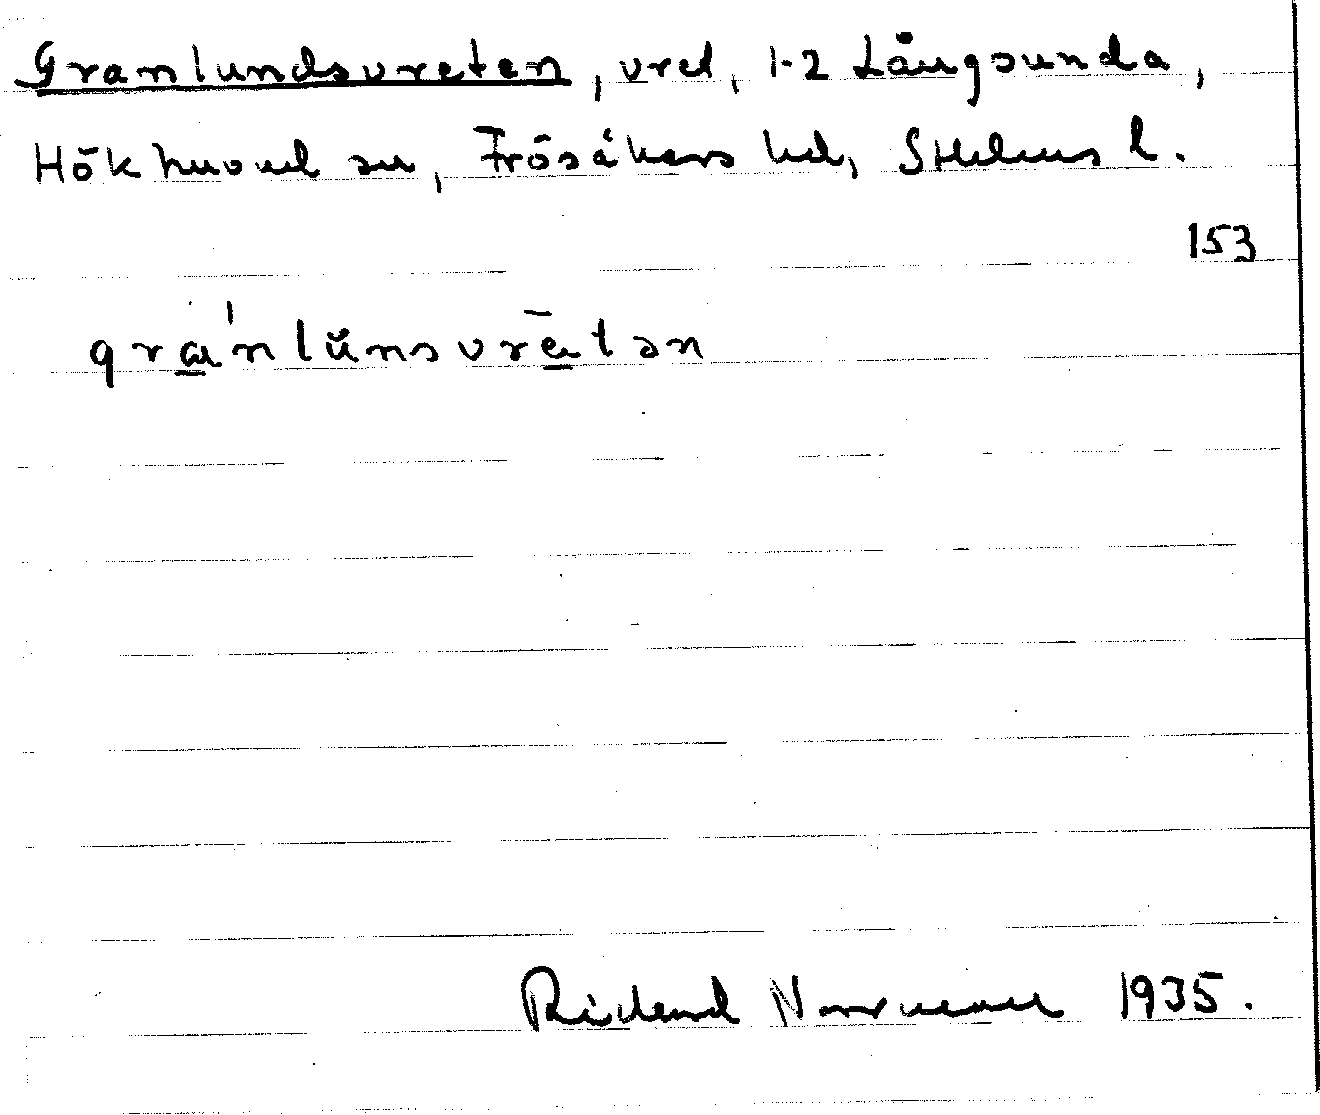 Granlundsvreten, vret, 1-2 Långsunda,
Hökhuvud sn, Frösåkers hd, Sthlms l.
153
gra̱ˈnlŭnsvrē̱tən
Rickard Norrman 1935.